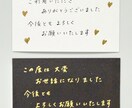 ご利用いただき
ありがとうございました
今後とも よろしく
お願いいたします
この度は 大変
お世話になりました
今後とも
よろしくお願いいたします